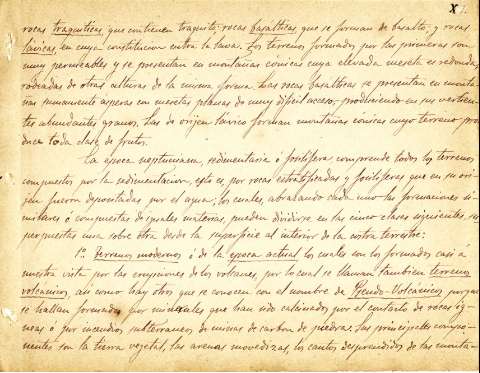 rocas traquíticas que contienen traquita; rocas basálticas que se forman de basalto; y rocas
lávicas, en cuya constitucion entra la lava. Los terrenos formados por las primeras son
muy permeables y se presentan en montañas cónicas cuya elevada meseta es redonda,
rodeadas de otras alturas de la misma forma. Las rocas basálticas se presentan en monta-
ñas sumamente ásperas con mesetas planas de muy dificil acceso; produciendo en sus vertien-
tes abundantes granos. Las de orijen lávico forman montañas cónicas cuyo terreno pro-
duce toda clase de frutos.
La época neptuniana, sedimentaria ó fosilífera comprende todos los terrenos
compuestos por la sedimentacion, esto es, por rocas estratificadas y fosilíferas que en su orí-
jen fueron depositadas por el agua; los cuales, abrazando cada uno las formaciones si-
milares ó compuestas de iguales materias, pueden dividirse en las cinco clases siguientes, su-
perpuestas una sobre otra desde la superficie al interior de la costra terrestre:
1ª Terrenos modernos ó de la época actual los cuales son los formados casi á
nuestra vista por las erupciones de los volcanes, por lo cual se llaman tambien terrenos
volcanicos, así como hay otros que se conocen con el nombre de Pseudo-Volcanicos porque
se hallan formados por minerales que han sido calcinados por el contacto de rocas íg-
neas ó por incendios subterraneos de minas de carbon de piedra. Sus principales compo-
nentes son la tierra vegetal, las arenas movedizas, los cantos desprendidos de las monta-